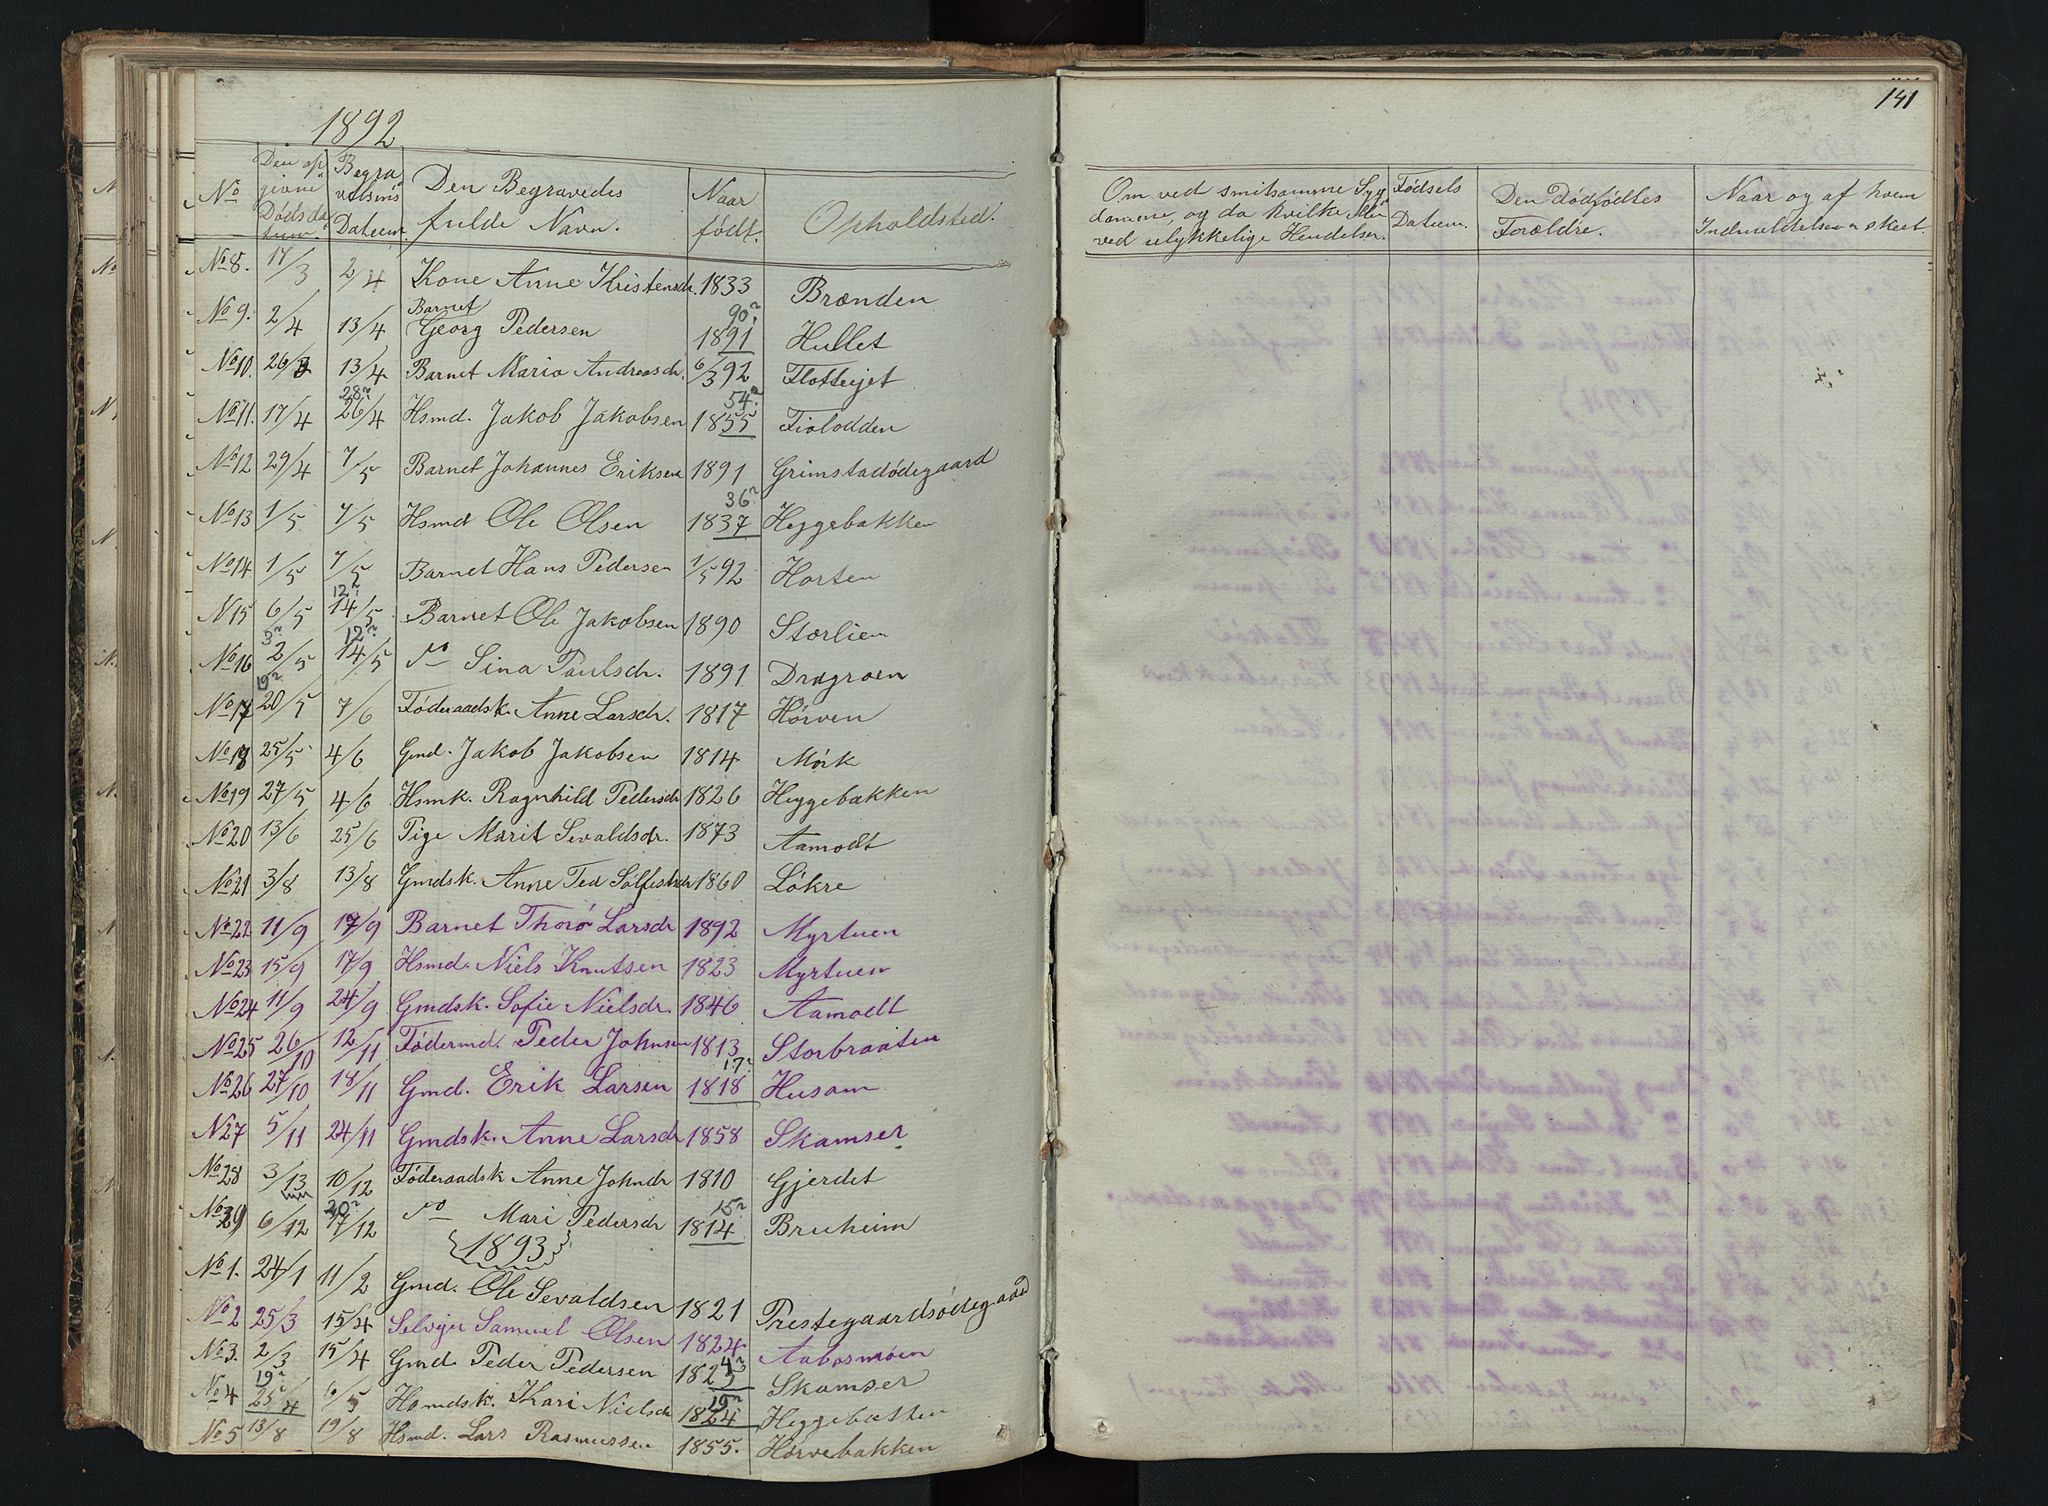 1892
No Den opgivne Dødsdatum Begravelsens Datum Den Begravedes fulde Navn. Naar født. Opholdsted.
No 8. 17/3 2/4 Kone Anne Kristensdr. 1833 Brænden
No 9. 2/4 13/4 Barnet Georg Pedersen 1891 90? Hullet
No 10. 26/3 13/4 Barnet Maria Andreasdr. 6/3 92 Flotteijet
No 11. 17/4 26/4 28? Hsmd. Jakob Jakobsen 1855 54? Fiolodden
No 12 29/4 7/5 Barnet Johannes Eriksen 1891 Grimstadødegaard
No 13 1/5 7/5 Hsmd Ole Olsen 1837 36? Heggebakken
No 14 1/5 7/5 Barnet Hans Pedersen 1/5 92 Horten
N 15 6/5 14/5 12? Barnet Ole Jakobsen 1890 Storlien
No 16 2/5 3? 14/5 12? do Sina Paulsdr. 1891 Dragroen
No 17 20/5 19? 7/6 Føderaadsk. Anne Larsdr. 1817 Hørven
No 18 25/5 4/6 Gmd. Jakob Jakobsen 1814 Mörk
No 19 27/5 4/6 Hsmk. Ragnhild Pedersdr 1826 Heggebakken
No 20 13/6 25/6 Pige Marit Sevaldsdr. 1873 Aamodt
No 21 3/8 13/8 Gmdsk. Anne Tea Sølfestdr 1860 Lökre
No 22 11/9 17/9 Barnet Thorö Larsdr 1892 Myrtuen
No 23 15/9 17/9 Hsmd. Niels Knutsen 1823 Myrtuen
No 24 11/9 24/9 Gmdsk. Sofie Nielsdr. 1846 Aamodt
No 25 26/10 12/11 Fødermd. Peder Johnsen 1813 Storbraaten
No 26 27/10 18/11 Gmd. Erik Larsen 1818 17? Husom
N 27 5/11 24/11 Gmdsk. Anne Larsdr 1858 Skamser
No 28 3/13 10/12 Føderaadsk Anne Johndr 1810 Gjerdet
No 29 6/12 17/12 20? do Mari Pedersdr 1814 15? Bruheim
1893
No 1. 24/1 11/2 Gmd. Ole Sevaldsen 1821 Prestegaardsødegaard
No 2 25/3 15/4 Selvejer Samuel Olsen 1824 Aabosmoen
No 3. 2/3 15/4 Gmd. Peder Pedersen 1825 4? Skamser
No 4 25/4 19? 6/5 Hsmdsk. Kari Nielsdr 1824 19? Heggebotten
No 5 13/8 19/8 Hsmd. Lars Rasmussen 1855. Hørvebakken
141
Om ved smitsomme Sygdomme, og da hvilke eller ved ulykkelige Hendelser. Fødsels Datum. Den Dødfødtes Forældre. Naar og af hvem Indmeldelsen er skeet.